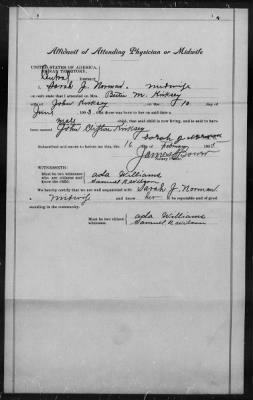 Affidavit of Attending Physician or Midwife
UNITED STATES OF AMERICA,
INDIAN TERRITORY,
Central DISTRICT
I, Sarah J. Norman, midwife
on oath state that I attended on Mrs. M. Kinksey
wife of John Kinksey on the 10 day of
June, 1903, that there was born to her on said date a
male child; that said child is now living, and is said to have
been named John Kinksey
Sarah J Norman
Subscribed and sworn to before me this, the 16 day of February 1905
James Bower
Notary Public
WITNESSETH:
Must be two witnesses
who are citizens and
know the child.
Ada Williams
Samuel R Wilson
We hereby certify that we are well acquainted with Sarah J. Norman
a midwife and know her to be reputable and of good
standing in the community.
Must be two citizen
witnesses.
Ada Williams
Samuel R Wilson